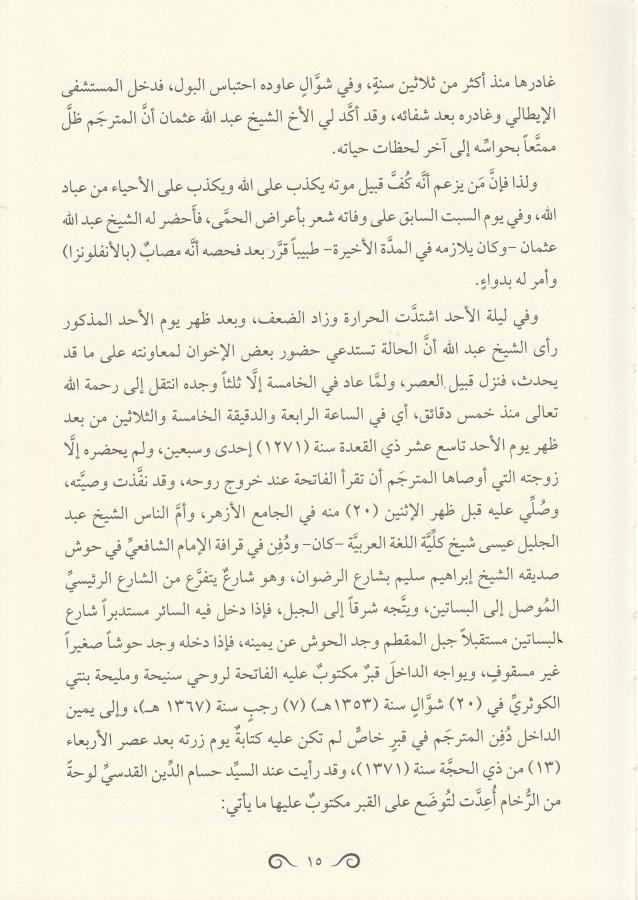 غادرها منذ أكثر من ثلاثين سنةٍ، وفي شوَّالٍ عاوده احتباس البول، فدخل المستشفى
الإيطالي وغادره بعد شفائه، وقد أكَّد لي الأخ الشيخ عبد الله عثمان أنَّ المترجَم ظلَّ
ممتَّعاً بحواسِّه إلى آخر لحظات حياته.
ولذا فإنَّ مَن يزعم أنَّه كُفَّ قبيل موته يكذب على الله ويكذب على الأحياء من عباد
الله، وفي يوم السبت السابق على وفاته شعر بأعراض الحمَّى، فأَحضر له الشيخ عبد الله
عثمان -وكان يلازمه في المدَّة الأخيرة- طبيباً قرَّر بعد فحصه أنَّه مصابٌ (بالأنفلونزا)
وأمر له بدواءٍ.
وفي ليلة الأحد اشتدَّت الحرارة وزاد الضعف، وبعد ظهر يوم الأحد المذكور
رأى الشيخ عبد الله أنَّ الحالة تستدعي حضور بعض الإخوان لمعاونته على ما قد
يحدث، فنزل قبيل العصر، ولمَّا عاد في الخامسة إلَّا ثلثاً وجده انتقل إلى رحمة الله
تعالى منذ خمس دقائق، أي في الساعة الرابعة والدقيقة الخامسة والثلاثين من بعد
ظهر يوم الأحد تاسع عشر ذي القعدة سنة (١٢٧١) إحدى وسبعين، ولم يحضره إلَّا
زوجته التي أوصاها المترجَم أن تقرأ الفاتحة عند خروج روحه، وقد نفَّذت وصيَّته،
وصُلِّي عليه قبل ظهر الإثنين (٢٠) منه في الجامع الأزهر، وأمَّ الناس الشيخ عبد
الجليل عيسى شيخ كلِّيَّة اللغة العربيَّة -كان- ودُفِن في قرافة الإمام الشافعيِّ في حوش
صديقه الشيخ إبراهيم سليم بشارع الرضوان، وهو شارعٌ يتفرَّع من الشارع الرئيسيِّ
المُوصل إلى البساتين، ويتَّجه شرقاً إلى الجبل، فإذا دخل فيه السائر مستدبراً شارع
البساتين مستقبلاً جبل المقطم وجد الحوش عن يمينه، فإذا دخله وجد حوشاً صغيراً
غير مسقوفٍ، ويواجه الداخلَ قبرٌ مكتوبٌ عليه الفاتحة لروحي سنيحة ومليحة بنتي
الكوثريِّ في (٢٠) شوَّال سنة (١٣٥٣هـ) (٧) رجبٍ سنة (١٣٦٧ هـ)، وإلى يمين
الداخل دُفِن المترجَم في قبرٍ خاصٍّ لم تكن عليه كتابةٌ يوم زرته بعد عصر الأربعاء
(١٣) من ذي الحجَّة سنة (١٣٧١)، وقد رأيت عند السيِّد حسام الدِّين القدسيِّ لوحةً
من الرُّخام أُعِدَّت لتُوضَع على القبر مكتوبٌ عليها ما يأتي:
١٥